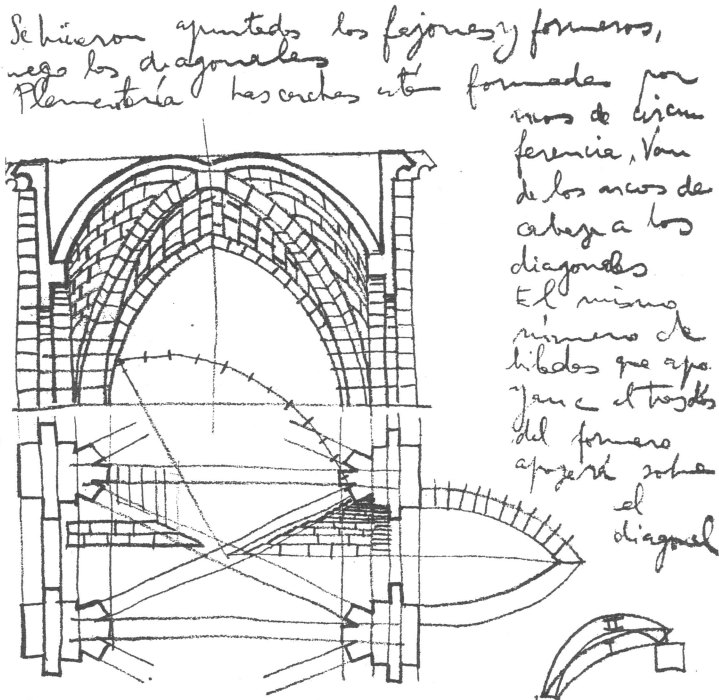 Se hicieron apuntados los fajones y formeros,
luego los diagonales
Plementería Las conchas están formadas por
arcos de circun
ferencia, Van
de los arcos de
cabeza a los
diagonales
El mismo
número de
hiladas que apo
yan el trasdós
del formero
apoyará sobre
el
diagonal
II
I